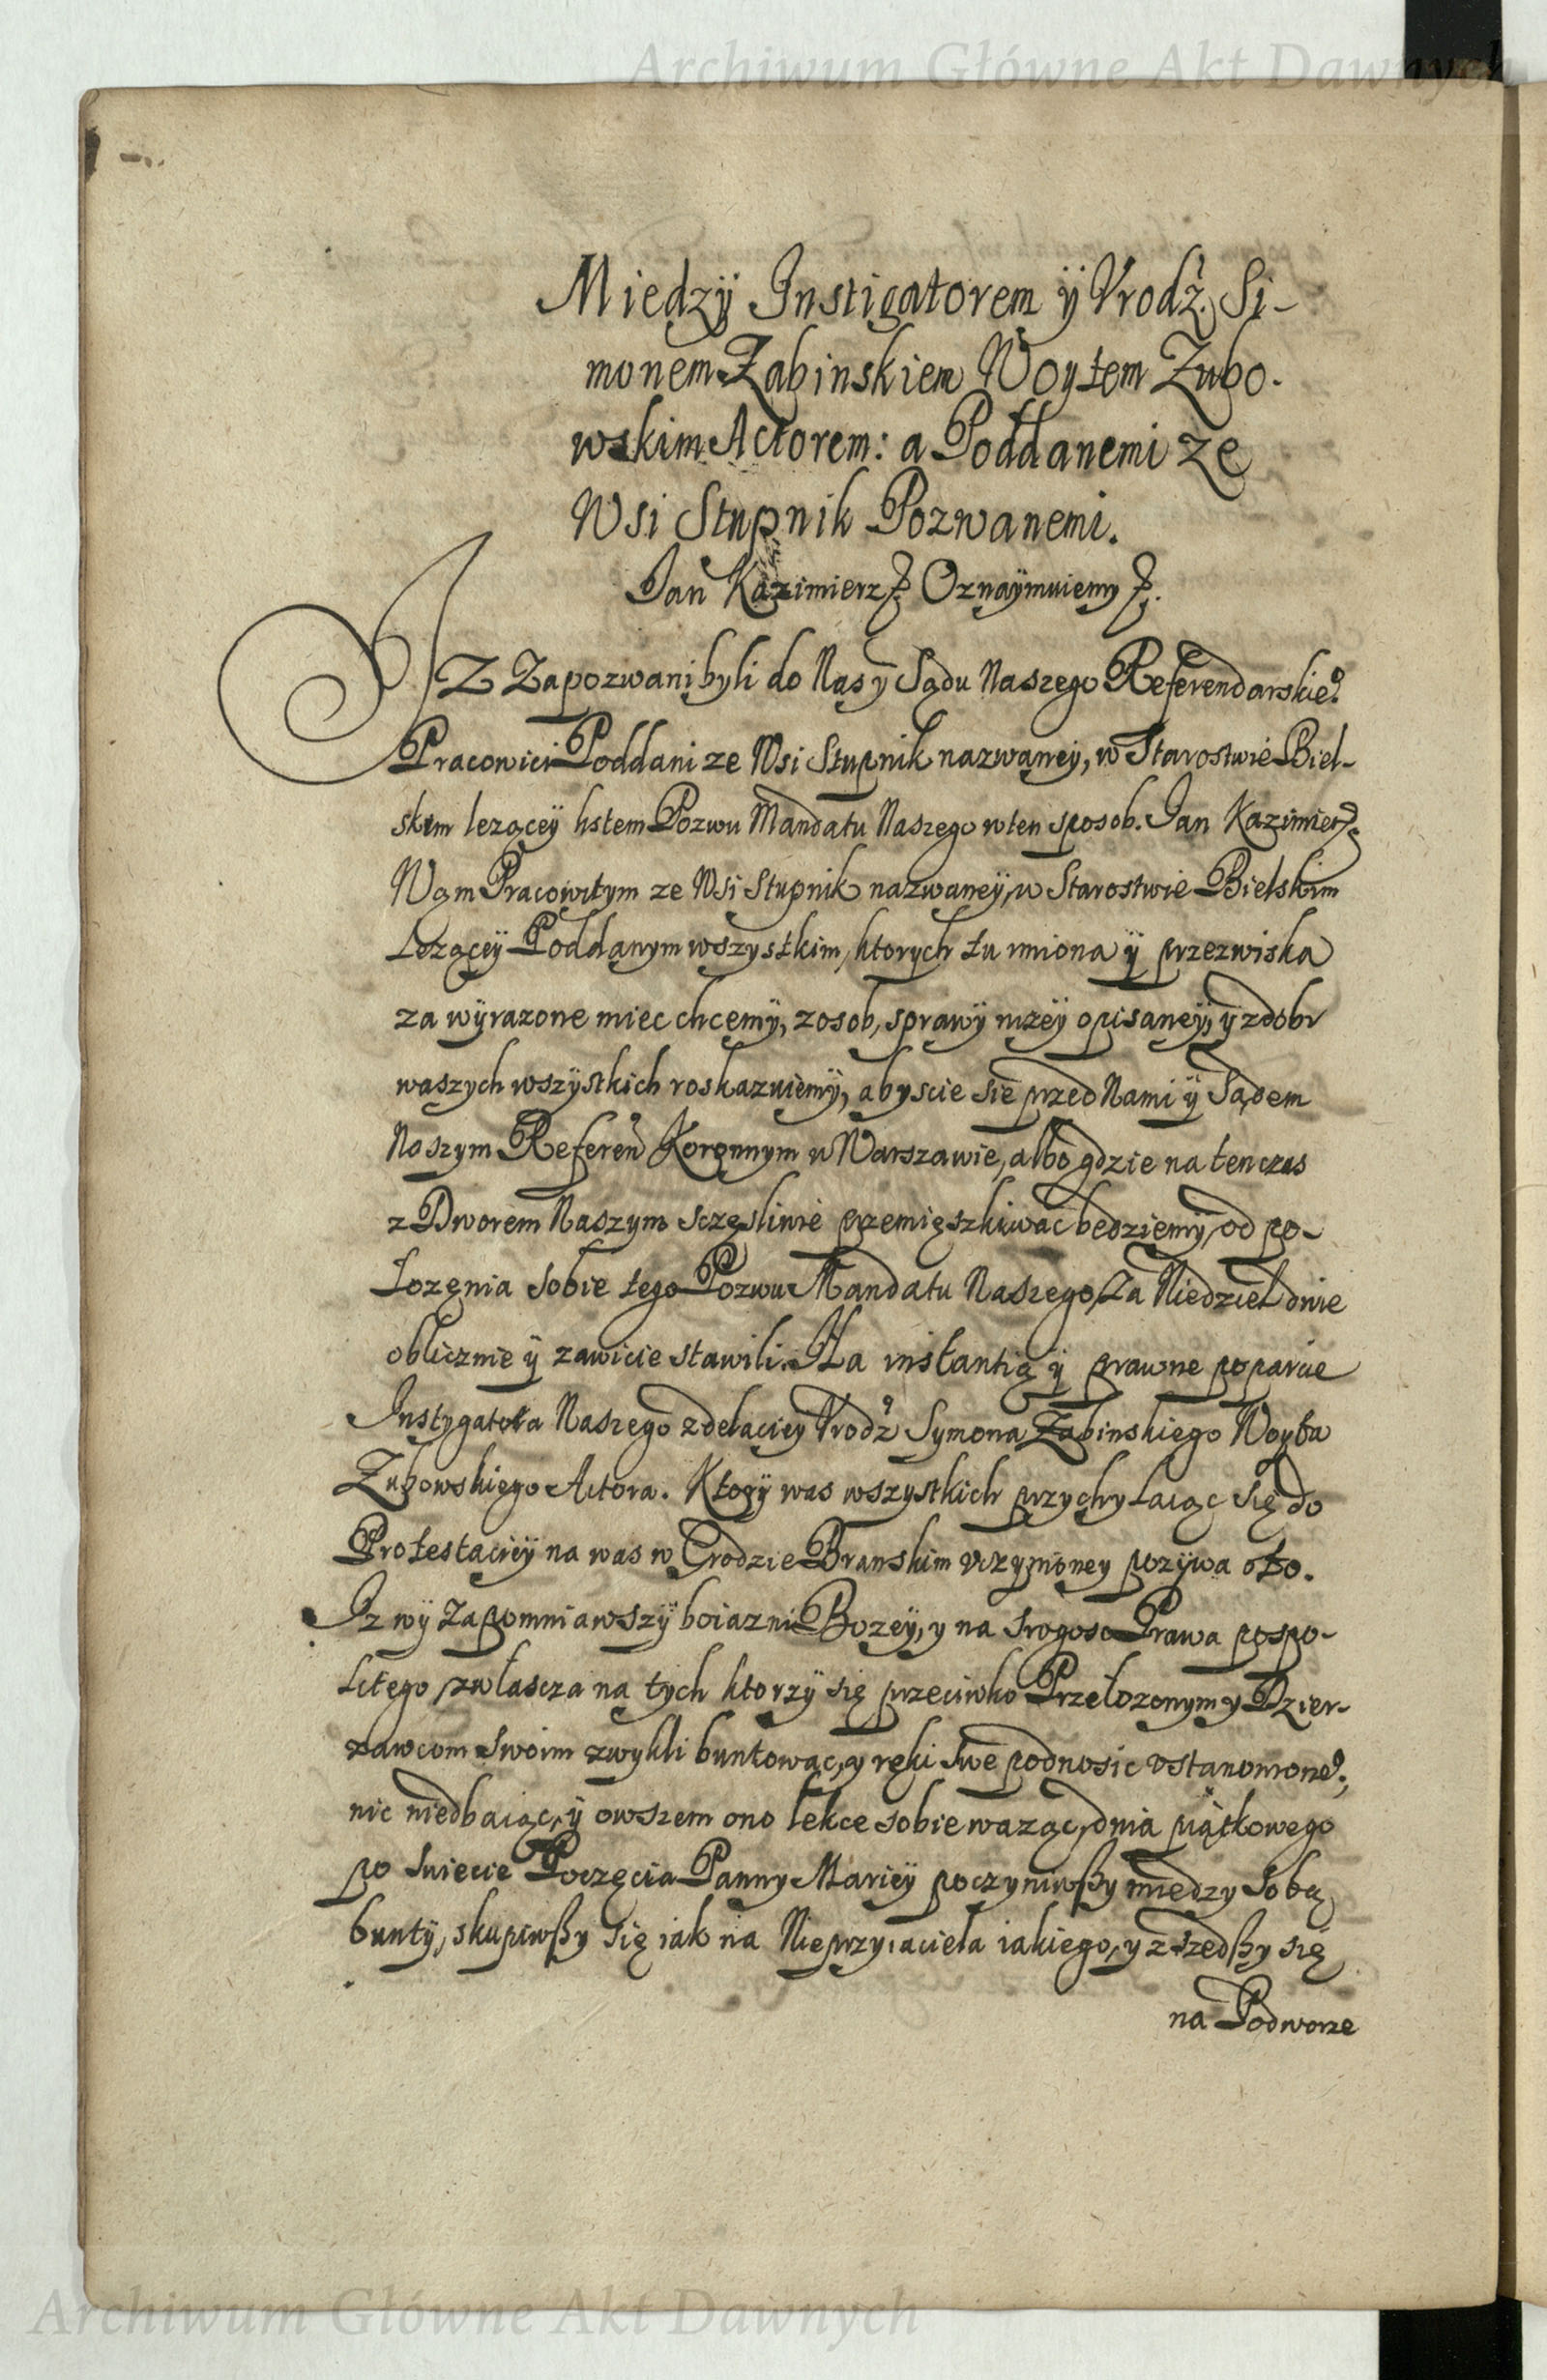 Archiwum Główne Akt Dawnych
Miedzÿ Instigatorem ÿ Vrodz. Si-
monem Zabinskiem Woytem Zubo-
wskim Actorem: a Poddanemi ze
Wsi Stupnik Pozwanemi.
Jan Kazimierz Oznaÿmuiemy
IZ Zapozwani byli do Nas y Sądu Naszego Referendarskieo
Pracowici Poddani ze Wsi Stupnik nazwaneÿ, w Starostwie Biel-
skim leząceÿ listem Pozwu Mandatu Naszego w ten sposob. Jan Kazimierz
Wam Pracowitym ze Wsi Stupnik nazwaneÿ, w Starostwie Bielskim
Leząceÿ Poddanym wszystkim, ktorych tu imiona ÿ przezwiska
za wÿrazone miec chcemÿ, z osob, sprawÿ nizeÿ opisaneÿ, ÿ z dobr
waszych wszÿstkich roskazuiemÿ, abyscie sie przed Nami ÿ Sądem
Naszym Referen Koronnym w Warszawie, albo gdzie na ten czas
z Dworem Naszym sczęsliwie przemięszkiwac bedziemÿ, od po-
łozęnia sobie tego Pozwu Mandatu Naszego, Za Niedziel dwie
oblicznie ÿ zawicie stawili. Na instantią ÿ prawne poparcie
Instygatora Naszego z delaciey Vrodz Symona Zabinskiego Woyta
Zubowskiego Actora. Ktorÿ was wszystkich przychylaiąc się do
Protestaciéÿ na was w Grodzie Branskim vczynioney pozÿwa oto.
Iz wÿ zapomniawszÿ boiazni Bozeÿ, y na srogosc Prawa pospo-
litego, zwłascza na tych ktorzÿ się przeciwko Przełozonym y Dzier-
zawcom swoim zwykli buntowac, y ręki swe podnosic vstanowioneo,
nic niedbaiąc, ÿ owszem ono lekce sobie waząc, dnia piątkowego
po swiecie Poczęcia Panny Mariéÿ poczyniwszy między sobą
buntÿ, skupiwszy się iak na Nieprzyiaciela iakiego, y zszedszy się
na Podworze
Archiwum Główne Akt Dawnych